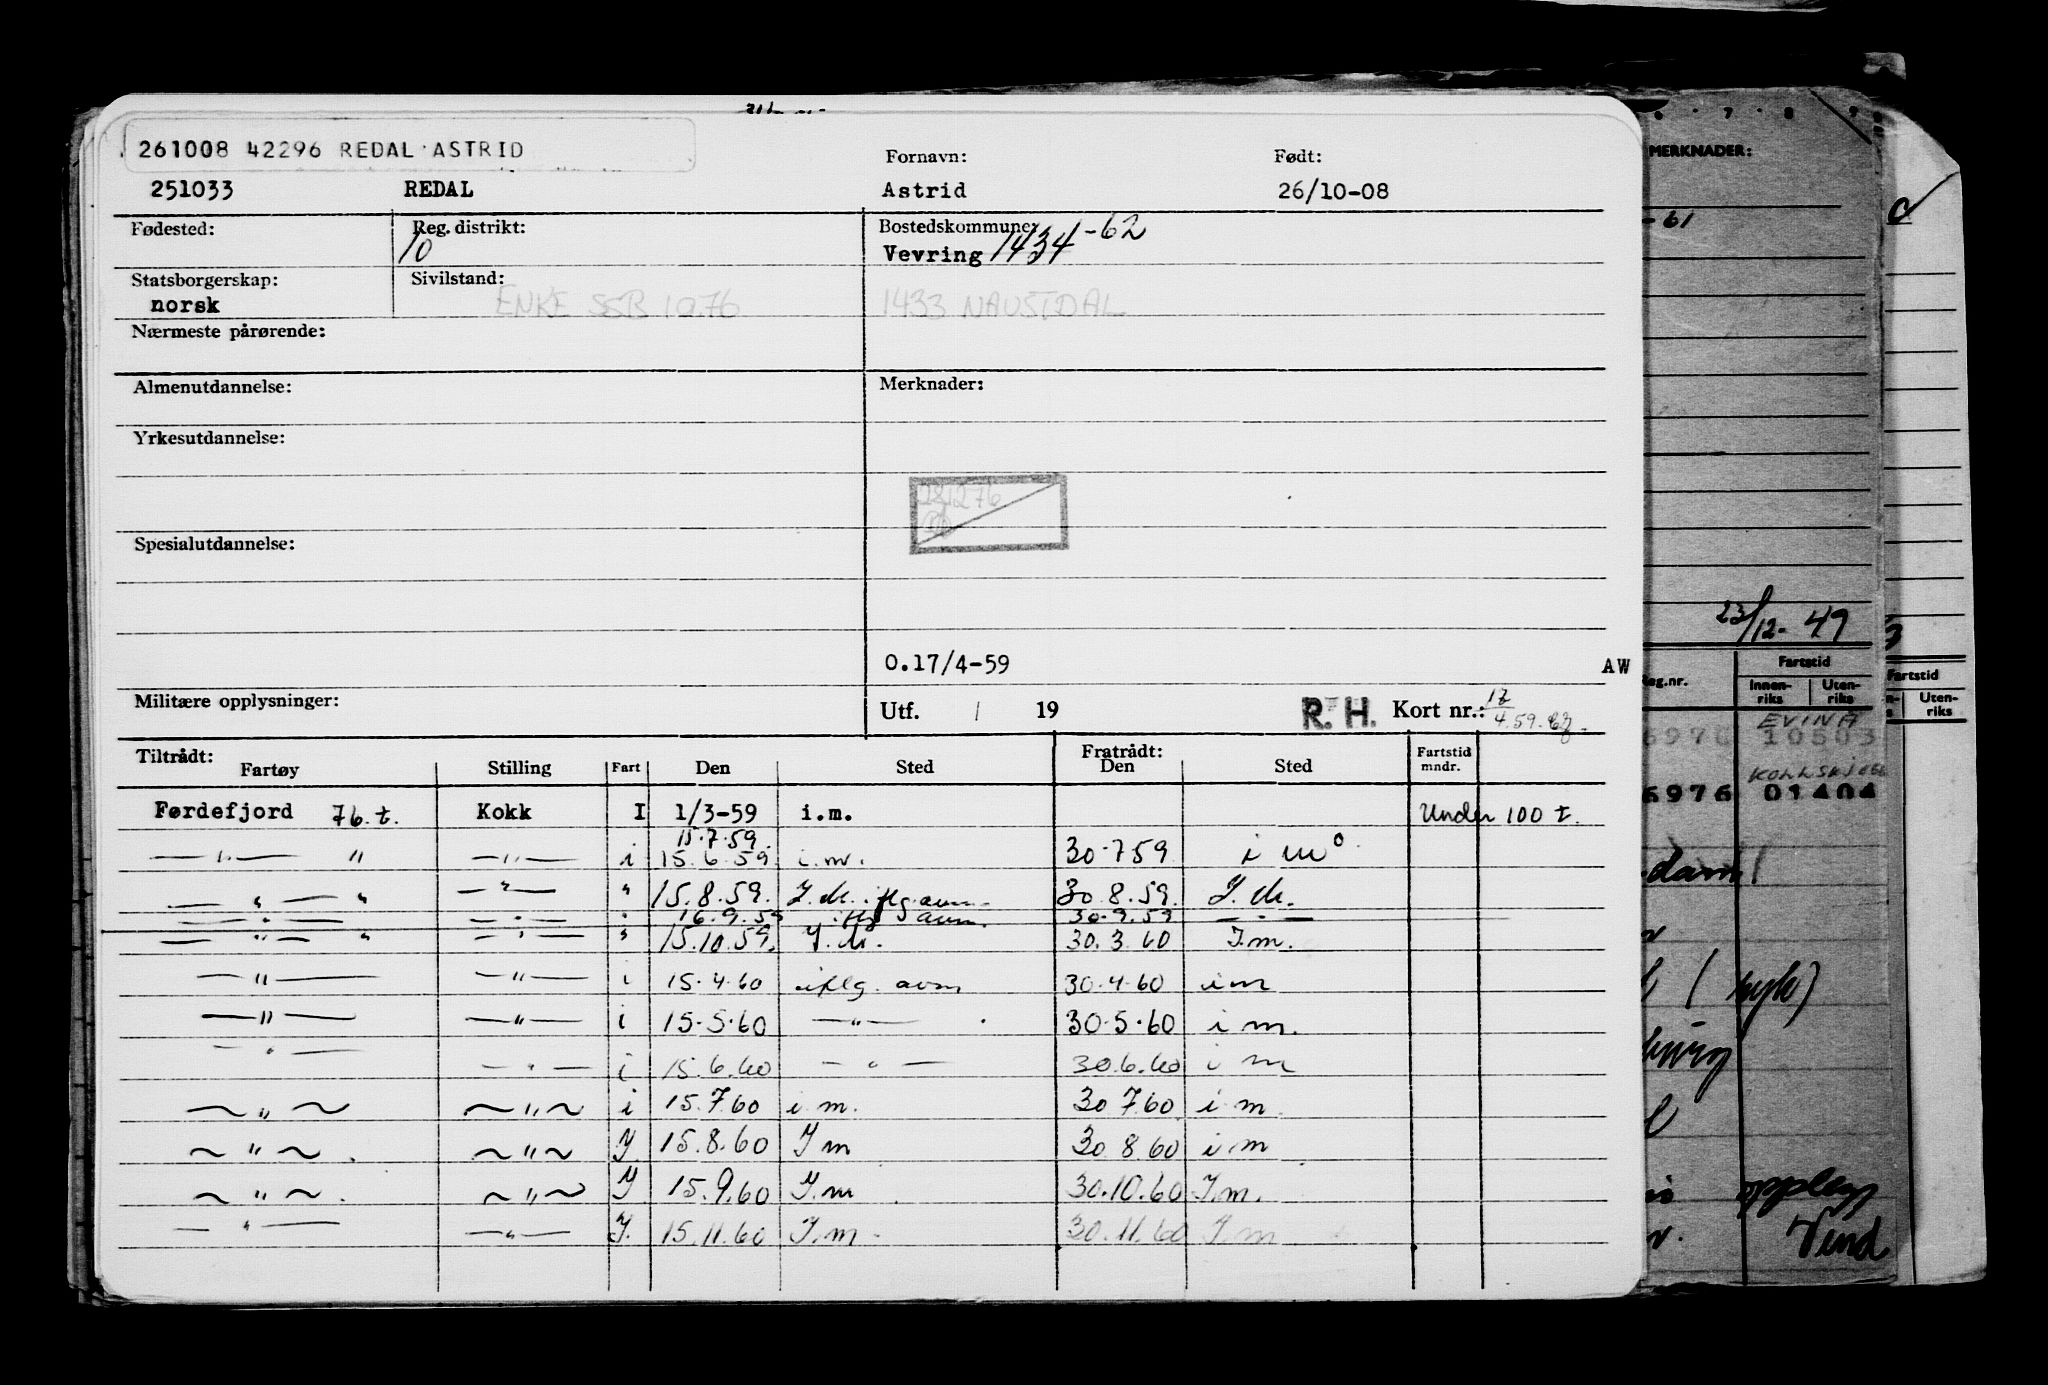 261008 42296 REDAL ASTRID
Fornavn: Født:
251033 REDAL Astrid 26/10-08
Fødested: Reg. distrikt: 10 Bostedskommune: Vevring 1434 -62
Statsborgerskap: norsk Sivilstand: ENKE SSB 1076 1433 NAUSTDAL
Nærmeste pårørende:
Almenutdannelse: Merknader:
Yrkesutdannelse:
281276
Spesialutdannelse:
O.17/4-59 AW
Militære opplysninger: Utf. / 19 R.H. Kort nr.: 17/4.59.
Tiltrådt: Fratrådt: Fartstid mndr.
Fartøy Stilling Fart Den Sted Den Sted
Førdefjord 76. t. Kokk I 1/3-59 i.m. Under 100 t.
15.7.59.
— " — " — " — i 15.6.59 i.m. 30.7.59 i m
— " — " — " — " 15.8.59. I.M. iflg. avm. 30.8.59. I.M.
— " — " — " — " 16.9.59 iflg avm. 30.9.59 — " —
— " — " — " — " 15.10.59. I.M. 30.3.60 I.m.
— " — — " — i 15.4.60 iflg. avm 30.4.60 i m
— " — — " — i 15.5.60 — " — 30.5.60 i m.
— " — — " — i 15.6.60 — " — 30.6.60 i m
— " — — " — i 15.7.60 i m. 30.7.60 i m.
— " — — " — I 15.8.60 I m 30.8.60 i m
— " — — " — I 15.9.60 I.m 30.10.60 I.m.
— " — — " — I. 15.11.60 I.m. 30.11.60 I.m
7 8 9
MERKNADER:
-61
23/12-49
Reg.nr. Fartstid
Innen-riks Uten-riks
EVINA
6976 10503
6976 01404
(kyk)
opplegg
Vend
Fartstid
Uten-riks